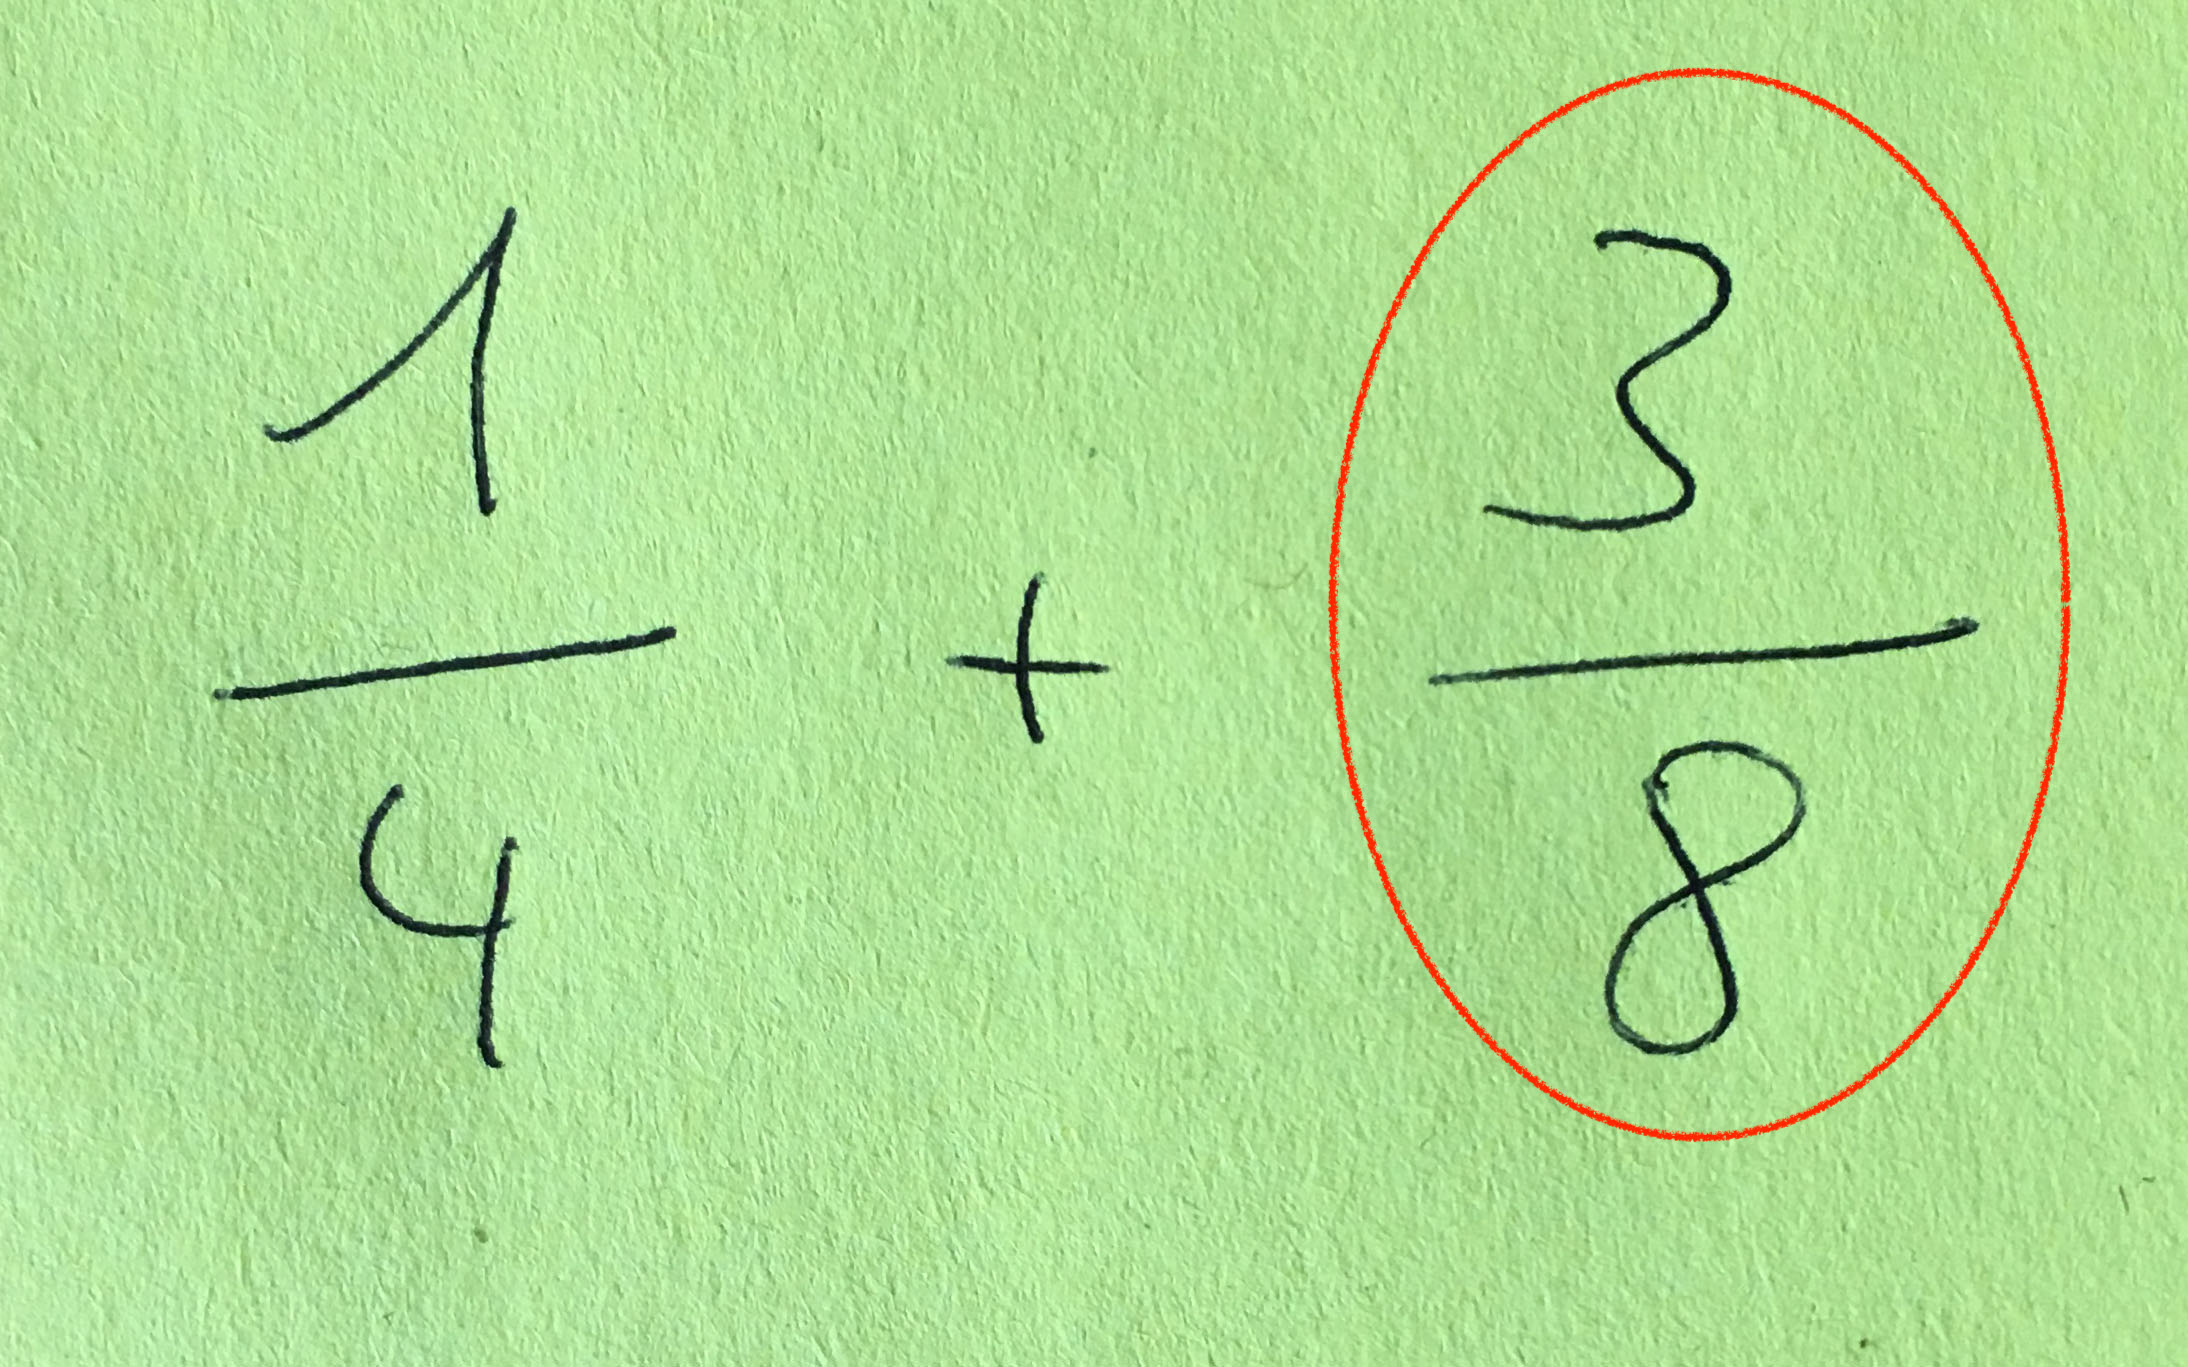 1/4 + 3/8